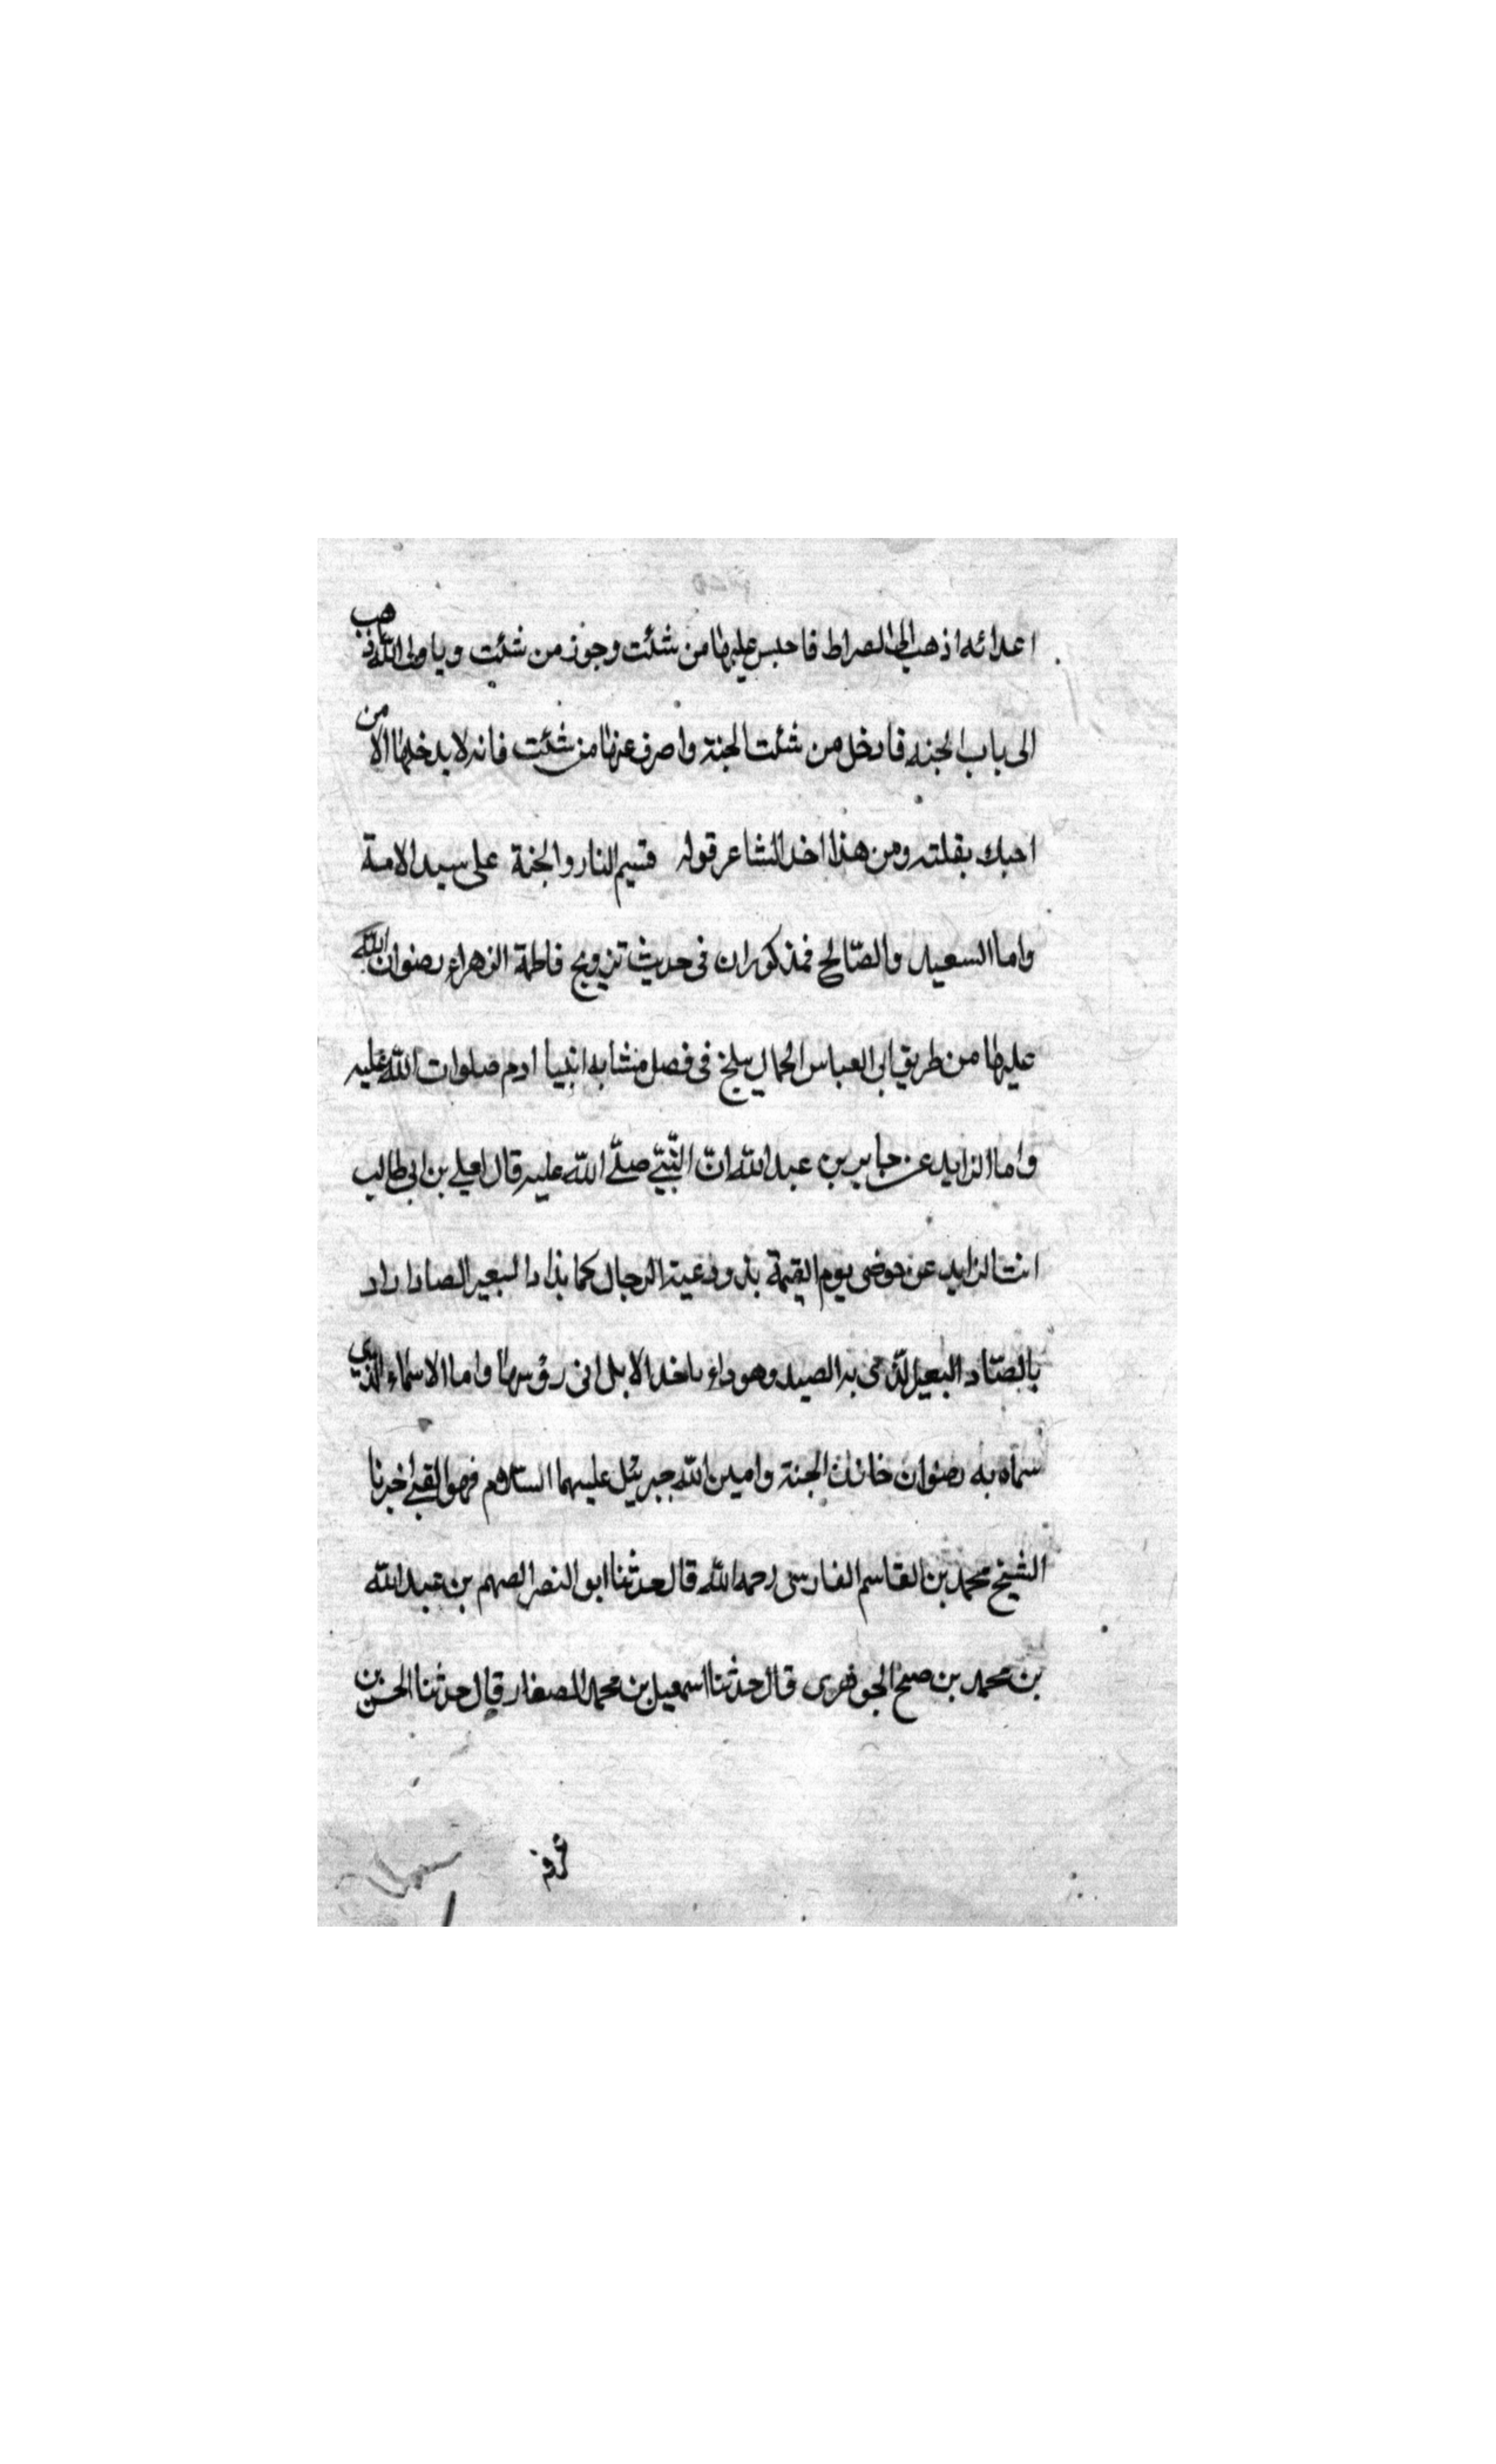 اعدائه اذهب الى الصراط فاحبس عليها من شئت وجوز من شئت ويا ولى الله اذهب
الى باب الجنه فادخل من شئت الجنة واصرف عنها من شئت فانه لا يدخلها الا من
احبك بقلبه ومن هذا اخذ الشاعر قوله قسيم النار والجنة على سيد الامة
واما السعيد والصّالح فمذكوران فى حديث تزويج فاطمة الزهراء رضوان الله
عليها من طريق ابى العباس الجمال ببلخ فى فصل مشابه انبيا ادم صلوات الله عليه
واما الزايد عن جابر بن عبد الله انّ النّبيّ صلّى الله عليه قال لعلي بن ابى طالب
انت الزايد عن حوضى يوم القيمة يذود عنه الرجال كما يذاد البعير الصاد اراد
بالصّاد البعير الّذى به الصيد وهو داء ياخذ الابل فى رؤسها واما الاسماء الّذي
سماه به رضوان خازن الجنة وامين الله جبريئل عليهما السلام فهو الفتى اخبرنا
الشيخ محمد بن القاسم الفارسى رحمه الله قال حدثنا ابو النصر بن عبد الله
بن محمد بن الجوهرى قال حدثنا اسمعيل بن محمد الصفار قال حدثنا الحسن بن